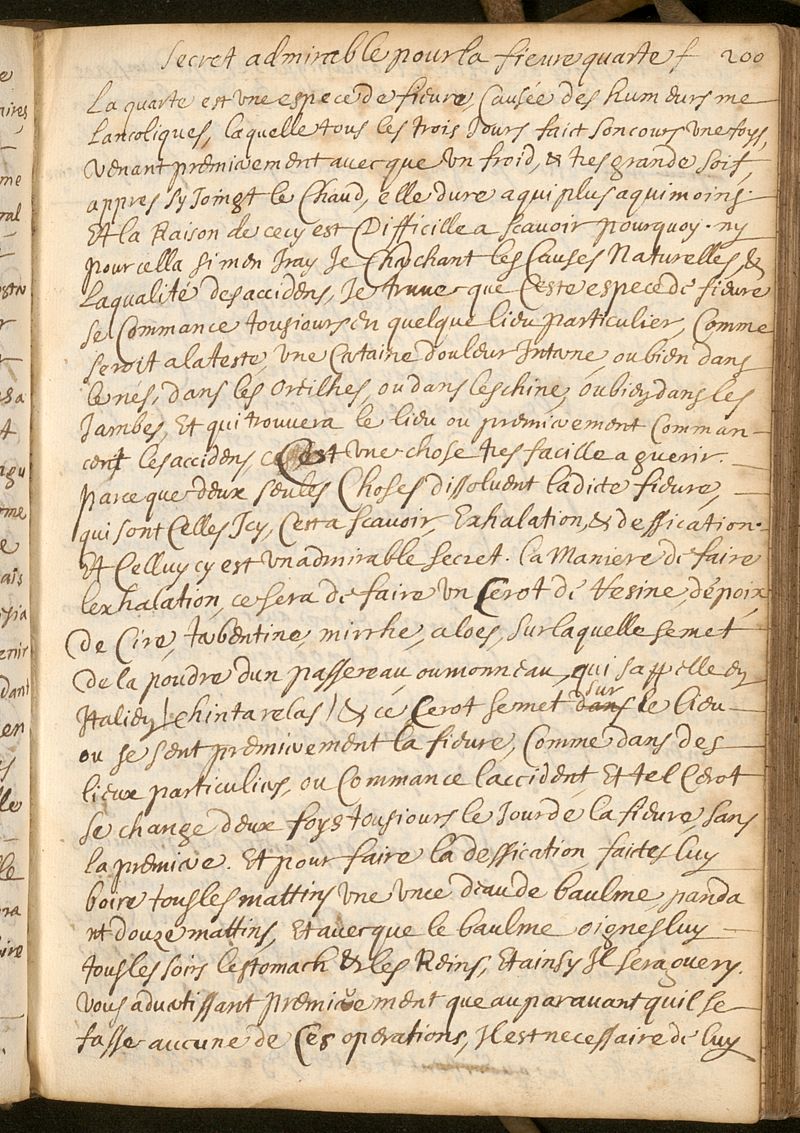 Secret admirable pour la fieure quarte f 200
La quarte est vne espece de fieure, Causée des humeurs me
Lancoliques, laquelle tous les trois Jours faict son cours vne foys,
venant premierement auecque vn froid, & tres grande soif,
appres sy Joingt le Chaud, elle dure a qui plus a qui moins.
Et la Raison de cecy est Difficille a scauoir pourquoy. ny
pour cella si men Iray Je Cherchant les Causes Naturelles, &
La qualité des accidens, Je truue que Ceste espece de fieure
se Commance tousiours en quelque lieu particulier, Comme
seroit a la teste, vne Certaine douleur Interne, ou bien dans
le nés, dans les Oreilhes, ou dans leschine, ou bien dans les
Jambes, Et qui trouuera le lieu ou premierement Comman-
cent les accidens Cest vne chose tres facille a guerir.
parce que deux seules Choses dissoluent ladicte fieure,
qui sont Celles Icy, Cest a scauoir, Exhalation, & dessication.
Et Celluy cy est vn admirable secret. la Maniere de faire
lexhalation, ce sera de faire vn Cerot de Resine, de poix
de Cire, terbentine, mirrhe, aloes, sur laquelle se met
de la poudre dun passereau, ou monneau, qui sappelle en
Italien / chintarelas / & ce Cerot se met dans sur le lieu
ou se sent premierement la fieure, Comme dans des
lieux particuliers, ou Commance laccident, Et tel Cerot
se change deux foys tousiours le Jour de la fieure, sans
la premiere. Et pour faire la dessication faictes luy
boire tous les mattins vne vnce deau de baulme, panda
nt douze mattins, Et auecque le baulme oignes luy
tous les soirs lestomach & les Reins, Et ainsy Il sera guery.
vous aduertissant premierement que au parauant quil se
fasse aucune de Ces operations, Il est necessaire de luy